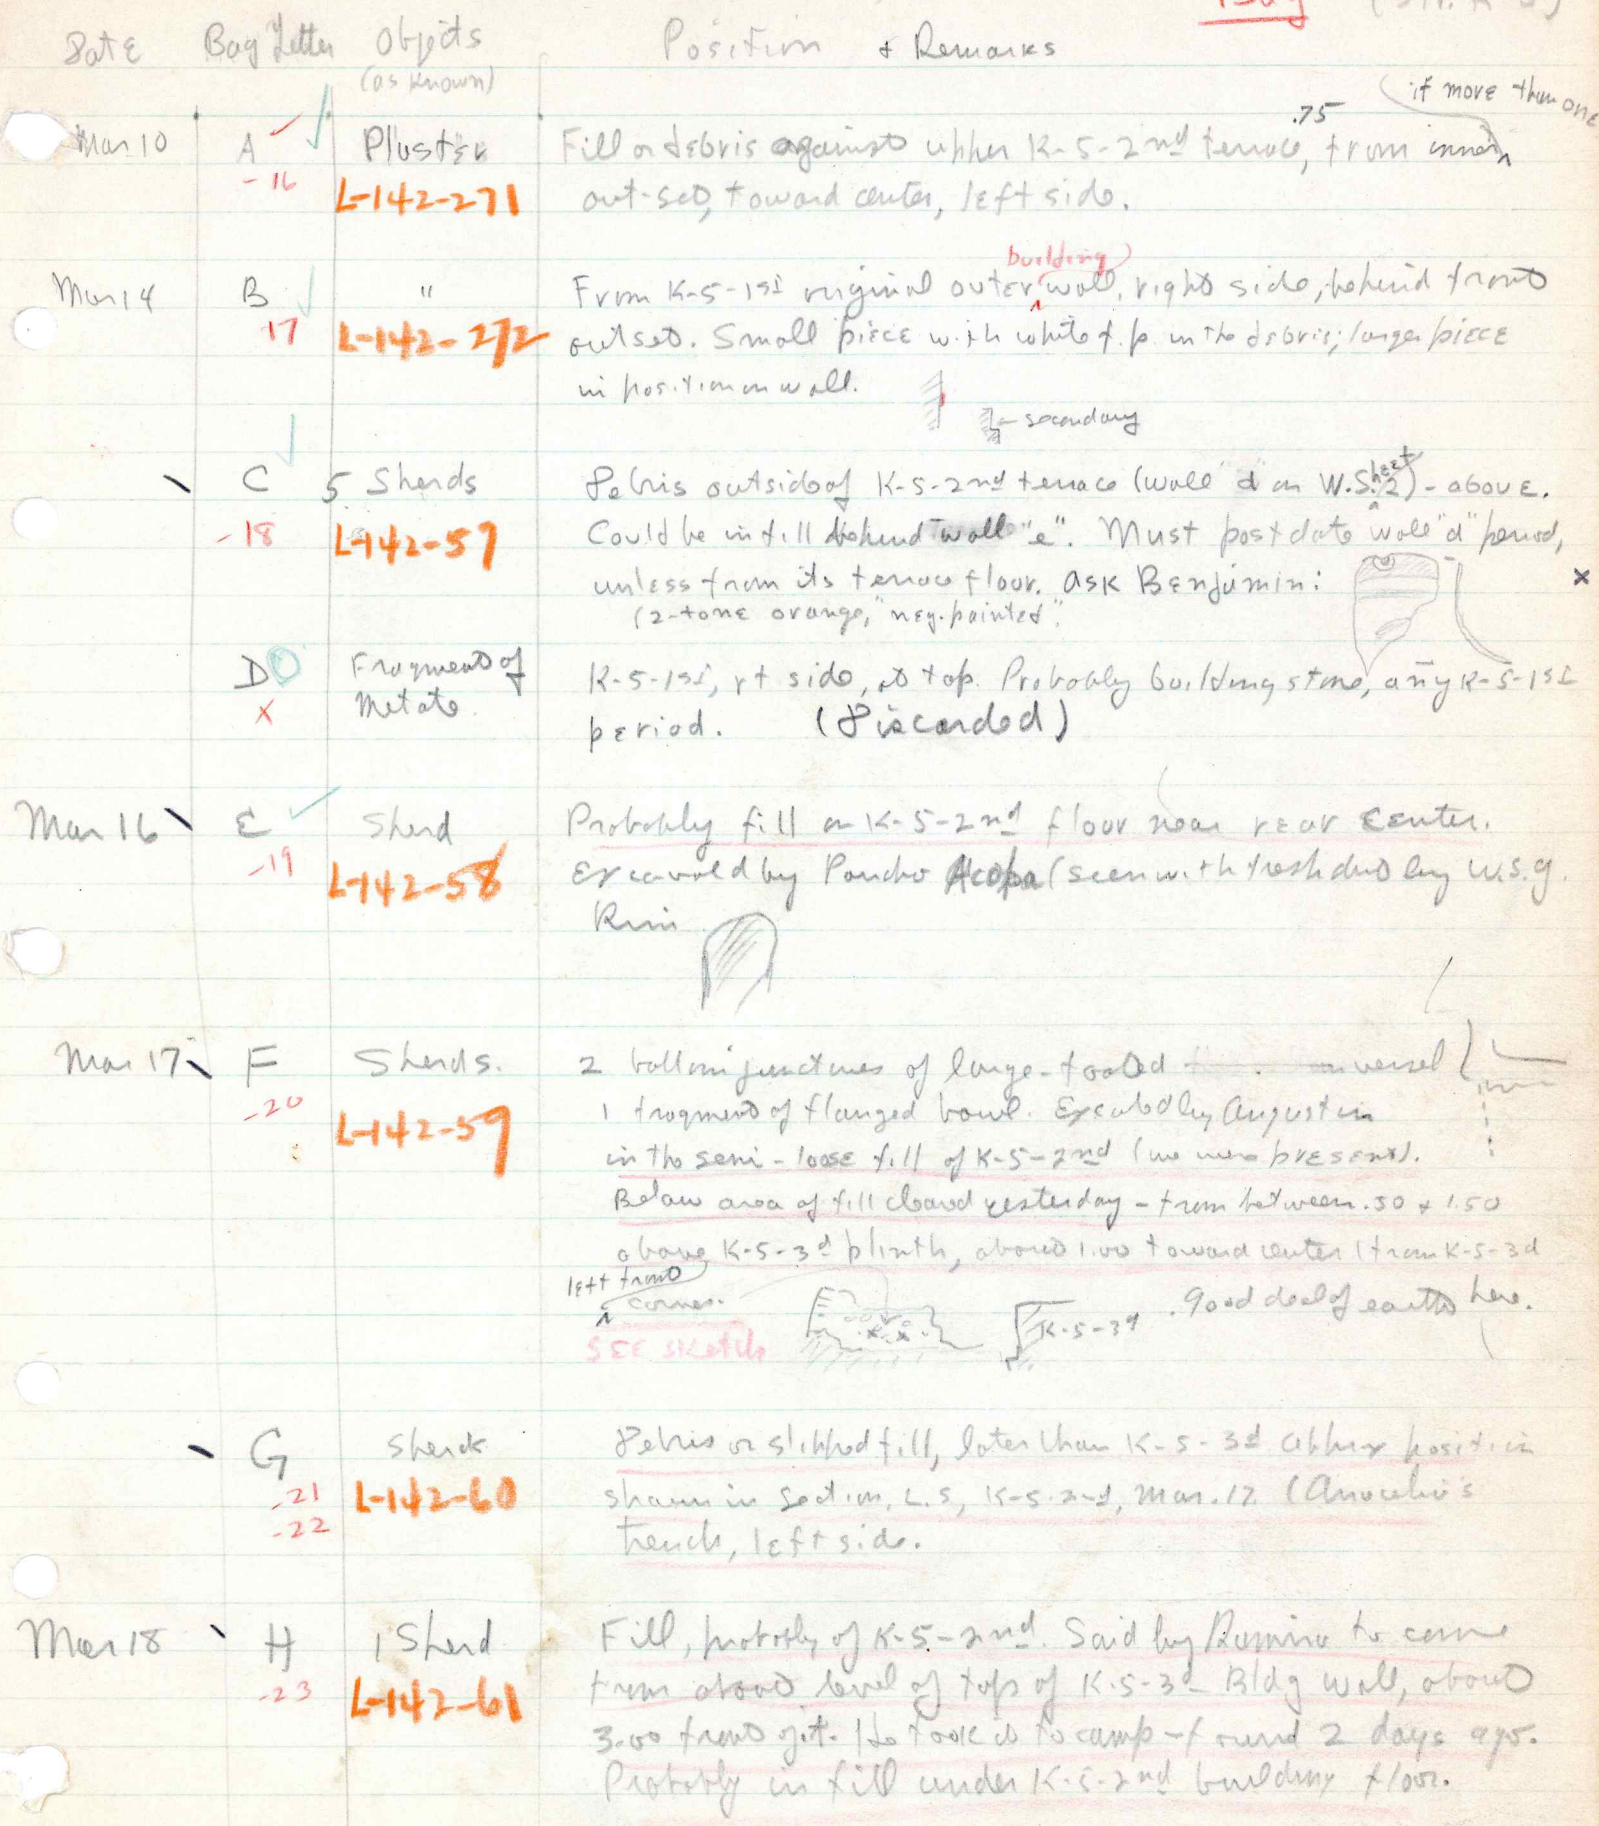 Bag
Date Bag Letter Objects (as known) Position + Remarks
if more than one
.75
Mar 10 A Plaster Fill or debris against upper K-5-2nd terrace, from inner
-16 L-142-271 out-set, toward center, left side.
building
Mar 14 B " From K-5-1st original outer wall, right side, behind front
17 L-142-272 outset. Small piece with white f.p. in the debris; larger piece
in position on wall.
secondary
C 5 Sherds Debris outside of K-5-2nd terrace (wall "d" on W. Sheet 2) - above.
-18 L-142-57 Could be in fill behind wall "e". Must postdate wall "d" period,
unless from its terrace floor. Ask Benjamin: x
(2-tone orange, "neg. painted".
D Fragment of K-5-1st, rt side, at top. Probably building stone, any K-5-1st
x Metate. period. (Discarded)
Mar 16 E Sherd Probably fill on K-5-2nd floor near rear center.
-19 L-142-58 Excavated by Pancho (seen with fresh dirt by W.S.G.
Rim
Mar 17 F Sherds. 2 bottom junctures of large-footed vessel
-20 L-142-59 1 fragment of flanged bowl. Excavated by Augustin
in the semi-loose fill of K-5-2nd (we were present).
Below area of fill cleared yesterday - from between .50 + 1.50
above K-5-3d plinth, about 1.00 toward center from K-5-3d
left front
corner. K-5-3d . Good deal of earth here.
SEE sketch
G Sherds Debris or slipped fill, later than K-5-3d approx position
-21 L-142-60 shown in section, L.S, K-5-2nd, Mar. 17. (
-22 trench, left side.
Mar 18 H 1 Sherd Fill, probably of K-5-2nd. Said by to come
-23 L-142-61 from about level of top of K-5-3d Bldg wall, about
3.00 front of it. He took it to camp - found 2 days ago.
Probably in fill under K-5-2nd building floor.